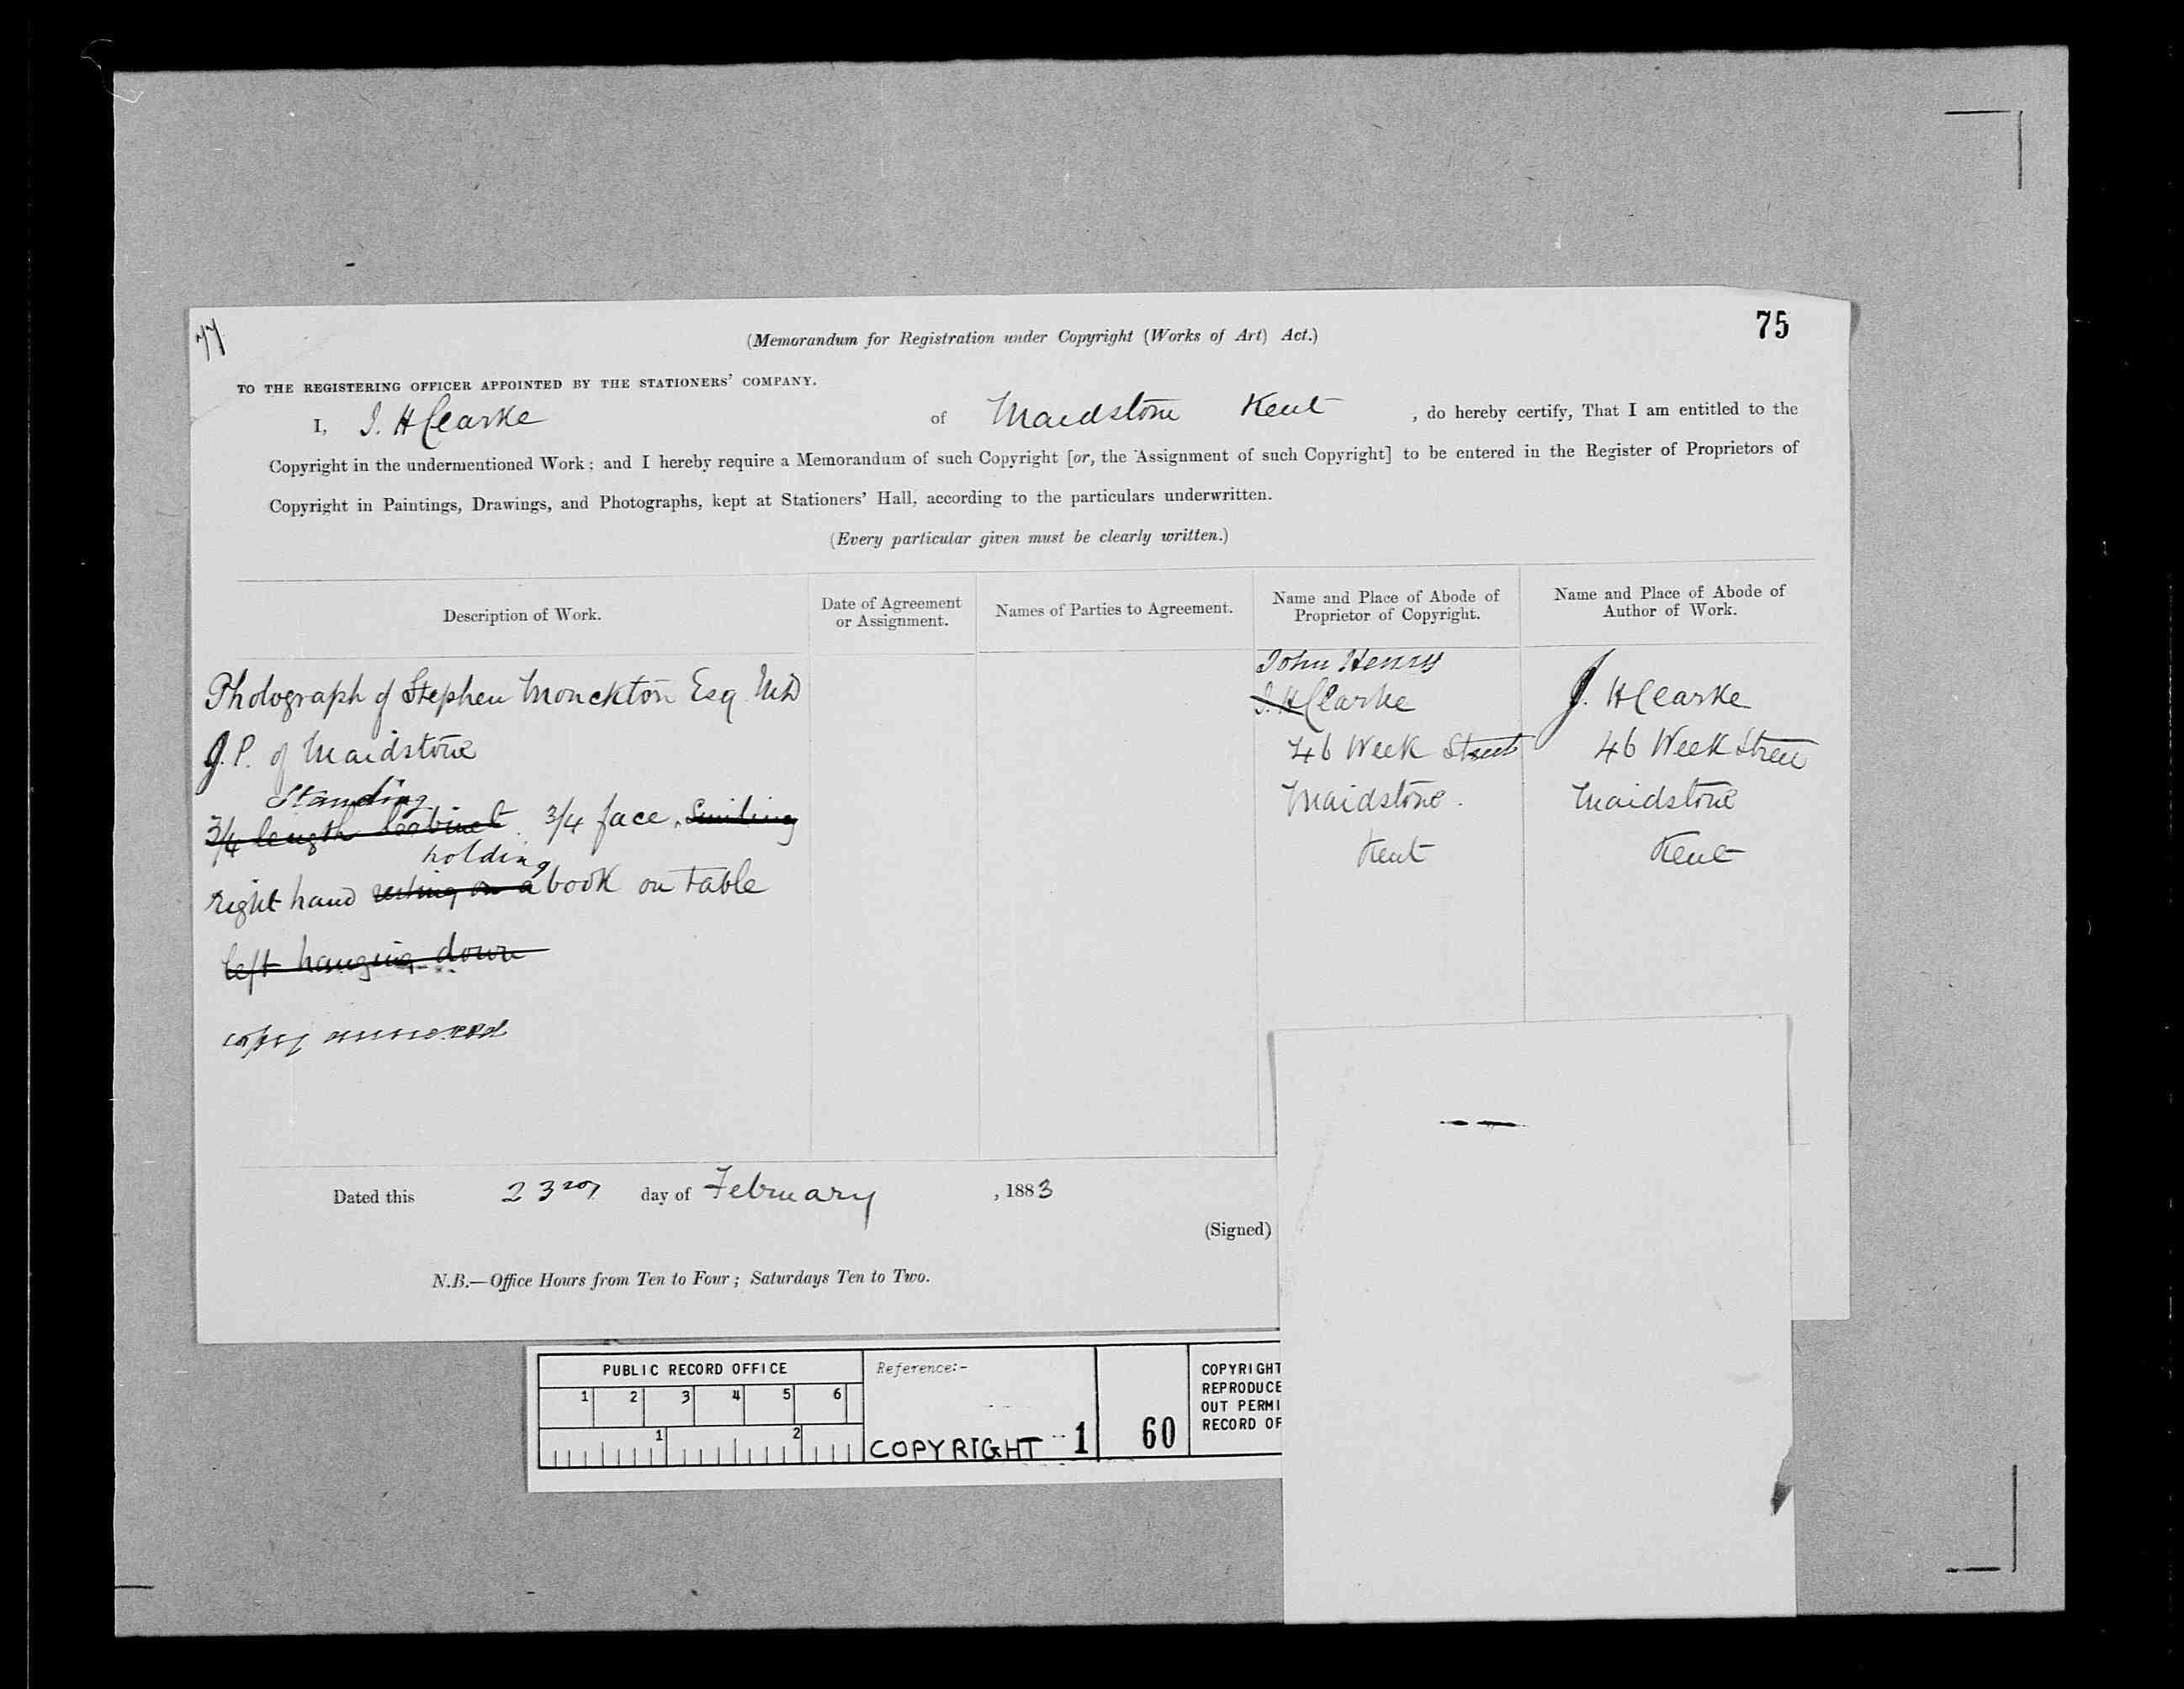 77
75
(Memorandum for Registration under Copyright (Works of Art) Act.)
TO THE REGISTERING OFFICER APPOINTED BY THE STATIONERS' COMPANY.
I, J. H Clarke of Maidstone Kent, do hereby certify, That I am entitled to the
Copyright in the undermentioned Work; and I hereby require a Memorandum of such Copyright [or, the Assignment of such Copyright] to be entered in the Register of Proprietors of
Copyright in Paintings, Drawings, and Photographs, kept at Stationers' Hall, according to the particulars underwritten.
(Every particular given must be clearly written.)
Description of Work.
Date of Agreement
or Assignment.
Names of Parties to Agreement.
Name and Place of Abode of
Proprietor of Copyright.
Name and Place of Abode of
Author of Work.
Photograph of Stephen Monckton Esq MD
J.P. of Maidstone
Standing
3/4 length Cabinet. 3/4 face, Smiling
holding
right hand resting on a book on table
left hanging down
copy annexed
John Henry
J. H Clarke
46 Week Street
Maidstone.
Kent
J. H Clarke
46 Week Street
Maidstone
Kent
Dated this 23rd day of February, 1883
(Signed)
N.B.—Office Hours from Ten to Four; Saturdays Ten to Two.
PUBLIC RECORD OFFICE
1 2 3 4 5 6
1 2
Reference:-
COPYRIGHT 1
60
COPYRIGHT
REPRODUCE
OUT PERMI
RECORD OF